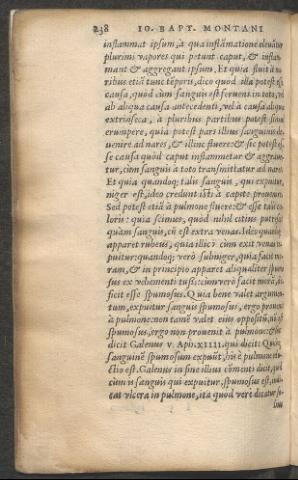 238 IO. BAPT. MONTANI
inflammat ipsum, à qua inflāmatione eleuātur
plurimi vapores qui petunt caput, & inflam
mant & aggregant ipsum. Et quia fluit à na
ribus etiā tunc tēporis, dico quòd illa potest esse
causa, quòd cùm sanguis est feruens in toto, vel
ab aliqua causa antecedenti, vel à causa aliqua
extrinseca, à pluribus partibus potest simul
erumpere, quia potest pars illius sanguinis de-
uenire ad nares, & illinc fluere: & sic potest es-
se causa quòd caput inflammetur & aggraue
tur, cùm sanguis à toto transmittatur ad nares.
Et quia quandoq; talis sanguis, qui expuitur,
niger est, ideo credunt isti à capite prouenire.
Sed potest etiā à pulmone fluere: & esse talis co
loris: quia scimus, quòd nihil citius putrescit
quàm sanguis, cū est extra venas. Ideo quandoq;
apparet rubeus, quia illicò cùm exit venas ex-
puitur: quandoq; verò subniger, quia facit moram,
& in principio apparet aliqualiter spumo
sus ex vehementi tussi: cùm verò facit morā, de
sicit esse spumosus. Quia bene valet argumen-
tum, expuitur sanguis spumosus, ergo prouenit
à pulmone: non tamē valet eius oppositū, nō est
spumosus, ergo non prouenit à pulmone: & sic
dicit Galenus v. Aph. XIIII. qui dicit: Qui
sanguinē spumosum expuūt, his è pulmone edu-
ctio est. Galenus in fine illius cōmenti dicit, quòd
cùm is sanguis qui expuitur, spumosus est, indi-
cat vlcera in pulmone, ita quòd verè dicatur